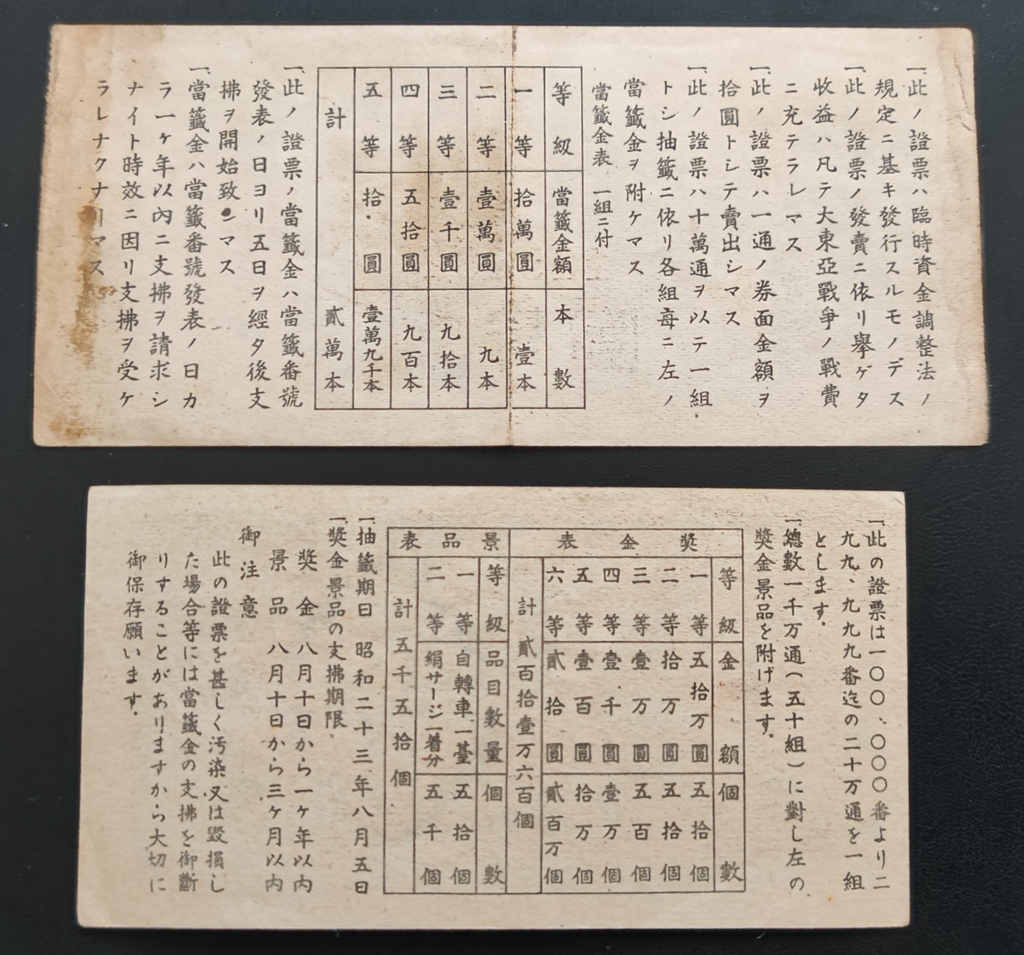 一、此ノ證票ハ臨時資金調整法ノ
規定ニ基キ發行スルモノデス
一、此ノ證票ノ發賣ニ依リ擧ゲタ
收益ハ凡テ大東亞戰爭ノ戰費
ニ充テラレマス
一、此ノ證票ハ一通ノ券面金額ヲ
拾圓トシテ賣出シマス
一、此ノ證票ハ十萬通ヲ以テ一組
トシ抽籤ニ依リ各組每ニ左ノ
當籤金ヲ附ケマス
當籤金表 一組ニ付
等級 當籤金額 本數
一等 拾萬圓 壹本
二等 壹萬圓 九本
三等 壹千圓 九拾本
四等 五拾圓 九百本
五等 拾圓 壹萬九千本
計 貳萬本
一、此ノ證票ノ當籤金ハ當籤番號
發表ノ日ヨリ五日ヲ經タ後支
拂ヲ開始致シマス
一、當籤金ハ當籤番號發表ノ日カ
ラ一ケ年以內ニ支拂ヲ請求シ
ナイト時效ニ因リ支拂ヲ受ケ
ラレナクナリマス
一、此の證票は一〇〇、〇〇〇番より二
九九、九九九番迄の二十万通を一組
とします.
一、總數一千万通(五十組)に對し左の
獎金景品を附げます.
獎金表
等級 金額 個數
一等 五拾万圓 五拾個
二等 拾万圓 五拾個
三等 壹万圓 五百個
四等 壹千圓 壹万個
五等 壹百圓 拾万個
六等 貳拾圓 貳百万個
計 貳百拾壹万六百個
景品表
等級 品目數量 個數
一等 自轉車一臺 五拾個
二等 絹サージ一着分 五千個
計 五千五拾個
一、抽籤期日 昭和二十三年八月五日
一、獎金景品の支拂期限.
獎金 八月十日から一ヶ年以內
景品 八月十日から三ヶ月以內
御注意
此の證票を甚しく汚染又は毀損し
た場合等には當籤金の支拂を御斷
りすることがありますから大切に
御保存願います.